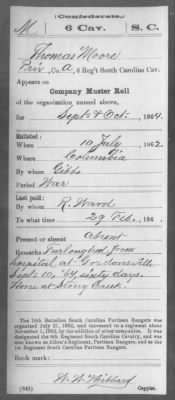 (Confederate.)
M 6 Cav. S. C.
Thomas Moore
Priv, Co. A, 6 Reg't South Carolina Cav.
Appears on
Company Muster Roll
of the organization named above,
for Sept & Oct, 1864.
Enlisted:
When 10 July, 1862.
Where Columbia
By whom Gibbs
Period War
Last paid:
By whom R. Ward
To what time 29 Feb., 186
Present or absent Absent
Remarks Furloughed from
hospital at Gordonsville
Sept. 10, '64, sixty days.
Horse at Stony Creek.
The 16th Battalion South Carolina Partisan Rangers was
organized July 21, 1862, and increased to a regiment about
November 1, 1862, by the addition of other companies. It was
designated the 6th Regiment South Carolina Cavalry, and was
known as Aiken's Regiment, Partisan Rangers, and as the
1st Regiment South Carolina Partisan Rangers.
Book mark:
(642) Copyist.